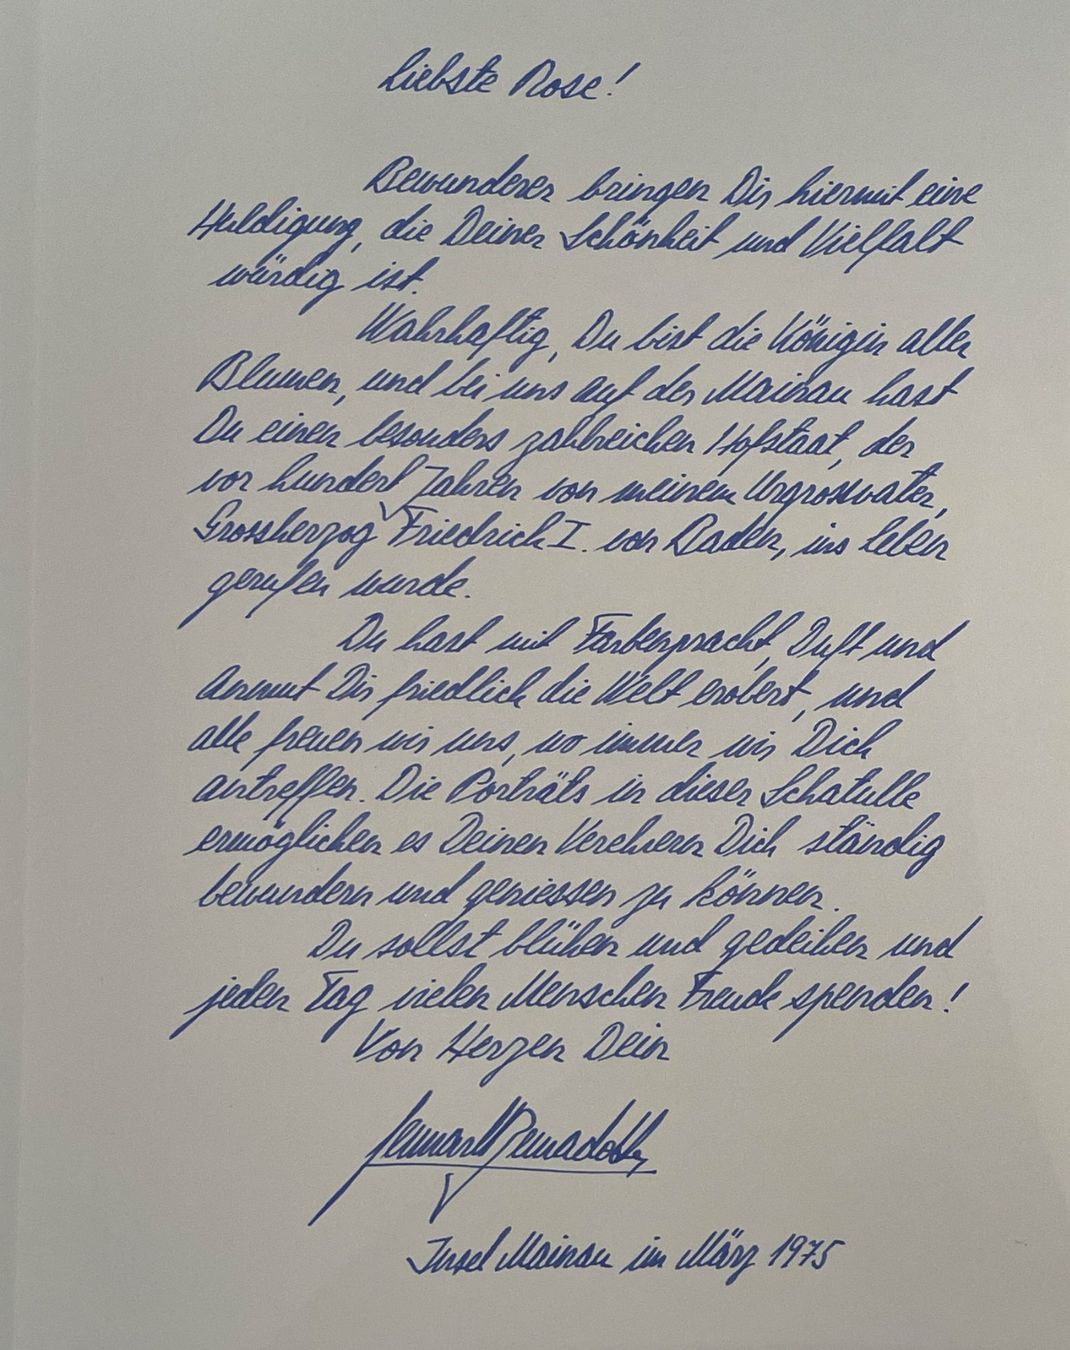 Liebste Rose!
Bewunderer bringen Dir hiermit eine
Huldigung, die Deiner Schönheit und Vielfalt
würdig ist.
Wahrhaftig, Du bist die Königin aller
Blumen, und bei uns auf der Mainau hast
Du einen besonders zahlreichen Hofstaat, der
vor hundert Jahren von meinem Urgrossvater,
Grossherzog Friedrich I. von Baden, ins Leben
gerufen wurde.
Du hast mit Farbenpracht, Duft und
Anmut Dir friedlich die Welt erobert, und
alle freuen wir uns, wo immer wir Dich
antreffen. Die Porträts in dieser Schatulle
ermöglichen es Deinen Verehrern Dich ständig
bewundern und geniessen zu können.
Du sollst blühen und gedeihen und
jeden Tag vielen Menschen Freude spenden!
Von Herzen Dein
Lennart Bernadotte
Insel Mainau im März 1975